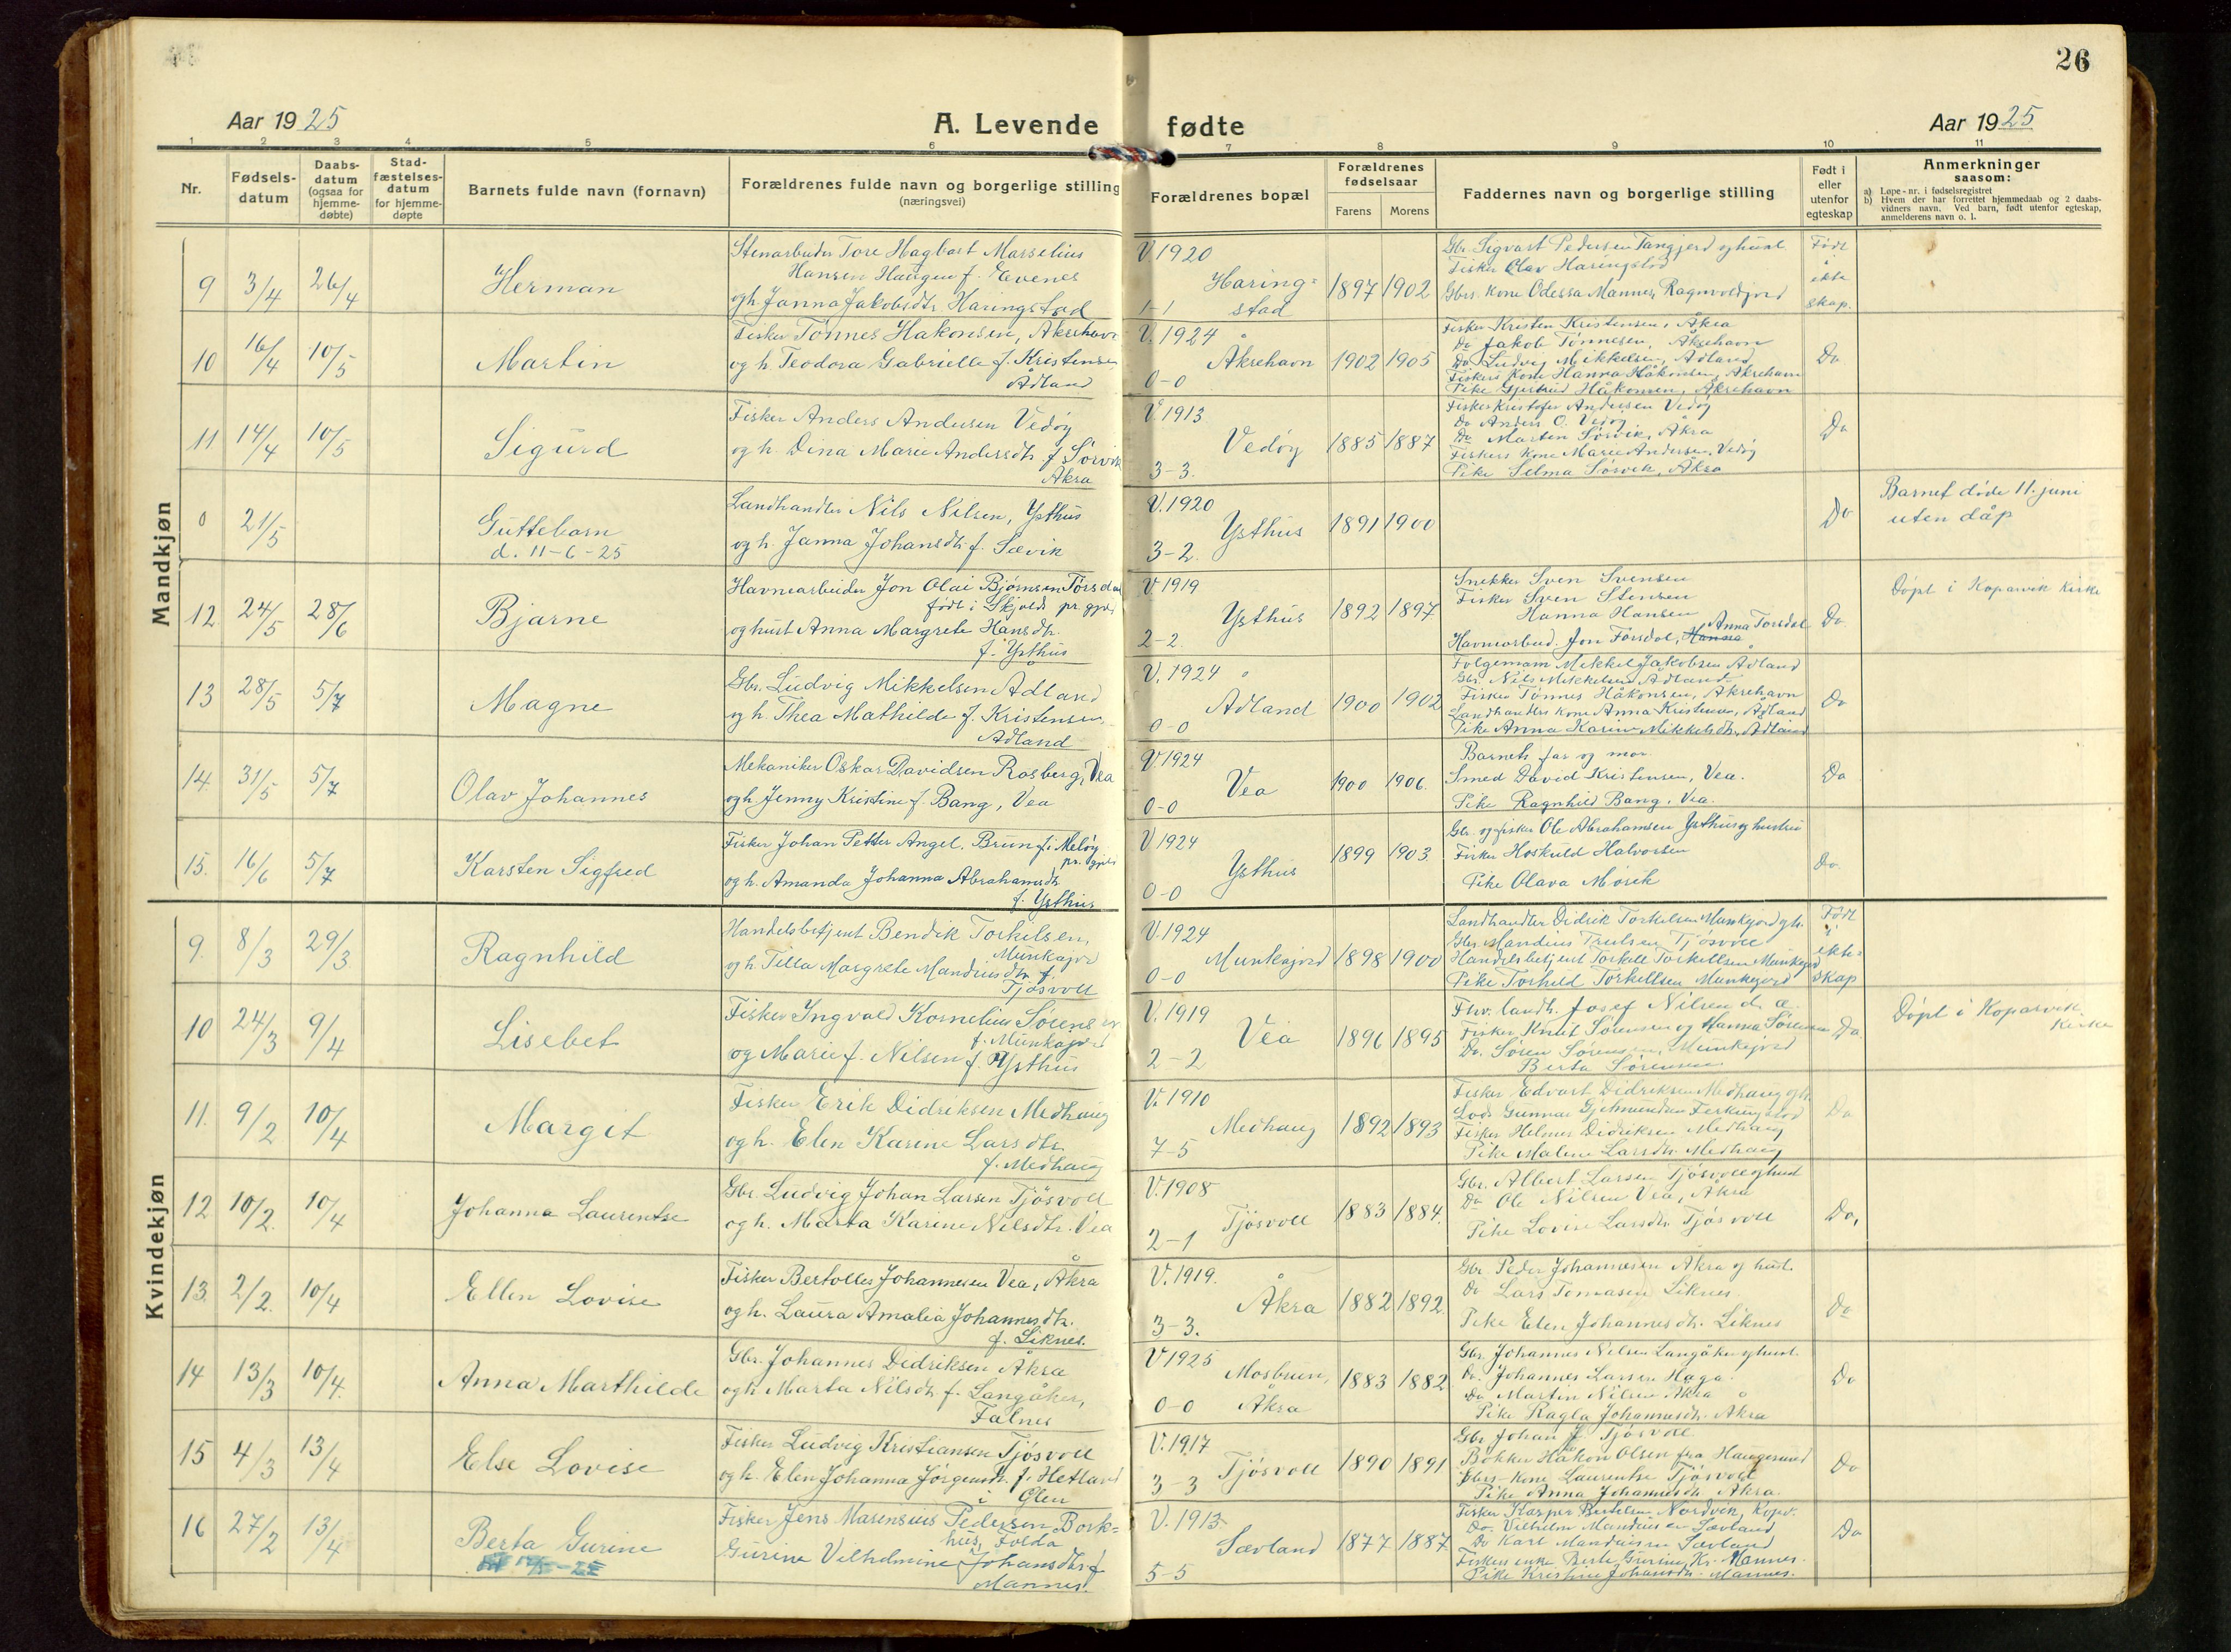 26
Aar 1925
A. Levende fødte
Aar 1925
1 2 3 4 5 6 7 8 9 10 11
Nr.
Fødsels-
datum
Daabs-
datum
(ogsaa for
hjemme-
døbte)
Stad-
fæstelses-
datum
for hjemme-
døpte
Barnets fulde navn (fornavn)
Forældrenes fulde navn og borgerlige stilling
(næringsvei)
Forældrenes bopæl
Forældrenes
fødselsaar
Farens
Morens
Faddernes navn og borgerlige stilling
Født i
eller
utenfor
egteskap
Anmerkninger
saasom:
a) Løpe-nr. i fødselsregistret
b) Hvem der har forrettet hjemmedaab og 2 daabs-
vidners navn. Ved barn, født utenfor egteskap,
anmelderens navn o. l.
Mandkjøn
9 3/4 26/4
Herman
Stenarbeider Tore Hagbart Marselius
Hansen Haugen f. Evenes
og h. Janna Jakobsdtr. Haringstad
V 1920
Haring=
1-1 stad
1897 1902
Gbr. Sigvart Pedersen Tangjerd og hust.
Fisker Olav Haringstad
Gbrs. Kone Odessa Mannes, Ragnvoldjord
Født
i
ekte
skap.
10 16/4 10/5
Martin
Fisker Tönnes Håkonsen, Åkrehavn
og h. Teodora Gabrielle f. Kristensen
Ådland
V. 1924
Åkrehavn
0-0
1902 1905
Fisker Kristen Kristensen, Åkra
Do Jakob Tönnesen, Åkrehavn
Do Ludvig Mikkelsen, Ådland
Fiskers Kone Hanna Håkonsen, Åkrehavn
Pike Gjertrud Håkonsen, Åkrehavn
Do
11 14/4 10/5
Sigurd
Fisker Anders Andersen Vedöy
og h. Dina Marie Andersdtr. f. Sörvik
Åkra
V. 1913
Vedöy
3-3.
1885 1887
Fisker Kristofer Andersen Vedöy
Do Anders O. Vedöy
Do Marten Sörvik, Åkra
Fiskers Kone Marie Andersen, Vedöy
Pike Selma Sörvik, Åkra
Do
0 21/5
Guttebarn
d. 11-6-25
Landhandler Nils Nilsen, Ysthus
og h. Janna Johansdtr. f. Sævik
V. 1920
Ysthus
3-2.
1891 1900
Do
Barnet döde 11. juni
uten dåp
12 24/5 28/6
Bjarne
Havnearbeider Jon Olai Björnsen Torsdal
födt i Skjolds pr. gjeld
og hust Anna Margrete Hansdtr.
f. Ysthus
V 1919
Ysthus
2-2.
1892 1897
Snekker Sven Svensen
Fisker Sven Stensen
Hanna Hansen
Anna Torsdal
Havnearbeid. Jon Torsdal, Hanna
Do.
Döpt i Kopervik Kirke
13 28/5 5/7
Magne
Gbr. Ludvig Mikkelsen Ådland
og h. Thea Mathilde f. Kristensen
Ådland
V. 1924
Ådland
0-0
1900 1902
Folgemann Mikkel Jakobsen Ådland
Gbr. Nils Mikkelsen Ådland
Fisker Tönnes Håkonsen, Åkrehavn
Landhandlers kone Anna Kristensen, Ådland
Pike Anna Karine Mikkelsdtr. Ådland
Do
14 31/5 5/7
Olav Johannes
Mekaniker Oskar Davidsen Rosberg, Vea
og h. Jenny Kristine f. Bang, Vea
V 1924
Vea
0-0
1900 1906.
Barnets far og mor
Smed David Kristensen, Vea.
Pike Ragnhild Bang, Vea.
Do
15. 16/6 5/7
Karsten Sigfred
Fisker Johan Petter Angel. Brun f. i Melöy
pr. gjeld
og h. Amanda Johanna Abrahamsdtr.
f. Ysthus
V 1924
Ysthus
0-0
1899 1903.
Gbr. og fisker Ole Abrahamsen Ysthus og hustru
Fisker Hoskuld Halvorsen
Pike Olava Mosik
Do.
Kvindekjøn
9. 8/3 29/3
Ragnhild
Handelsbetjent Bendik Torkelsen,
Munkajord
og h. Tella Margrete Mandiusdtr. f.
Tjösvoll
V. 1924
Munkajord
0-0
1898 1900
Landhandler Didrik Torkelsen Munkejord og h.
Gbr. Mandius Trulsen Tjösvoll
Handelsbetjent Torkell Torkellsen Munkejord
Pike Torheld Torkellsen Munkejord
Födt
i
ekte=
skap
10 24/3 9/4
Lisebet
Fisker Ingvald Kornelius Sörensen
f. Munkajord
og Marie f. Nilsen f. Ysthus
V. 1919
Vea
2-2
1896 1895
Fhv. landh. Josef Nilsen d. æ.
Fisker Knut Sörensen og Hanna Sörensen
Do. Sören Sörensen, Munkejord
Berta Sörensen
Do
Döpt i Kopervik
Kirke
11. 9/2 10/4
Margit
Fisker Erik Didriksen Medhaug
og h. Elen Karine Larsdtr.
f. Medhaug
V. 1910
Medhaug
7-5
1892 1893
Fisker Edvart Didriksen Medhaug og h.
Lods Gunnar Gjetmundsen Ferkingstad
Fisker Helmer Didriksen Medhaug
Pike Malene Larsdtr. Medhaug
Do
12 10/2. 10/4
Johanna Laurentse
Gbr. Ludvig Johan Larsen Tjösvoll
og h. Marta Karine Nilsdtr. Vea
V. 1908
Tjösvoll
2-1
1883 1884.
Gbr. Albert Larsen Tjösvoll og hust
Do Ole Nilsen Vea, Åkra
Pike Lovise Larsdtr. Tjösvoll
Do,
13. 2/2. 10/4
Ellen Lovise
Fisker Bertolles Johannesen Vea, Åkra
og h. Laura Amalia Johannesdtr.
f. Liknes.
V. 1919.
Åkra
3-3.
1882 1892.
Gbr. Peder Johannesen Åkra og hust.
Do Lars Tomasen Liknes.
Pike Elen Johannesdtr. Liknes
Do
14 13/3 10/4.
Anna Marthilde
Gbr. Johannes Didriksen Åkra
og h. Marta Nilsdtr. f. Langåker,
Falnes
V 1925
Mosbrun,
0-0 Åkra
1883 1882
Gbr. Johannes Nilsen Langåker og hust.
Do. Johannes Larsen Haga.
Do Martin Nilsen Åkra
Pike Ragla Johannesdtr. Åkra
Do
15 4/3 13/4
Else Lovise
Fisker Ludvig Kristiansen Tjösvoll
og h. Elen Johanna Jörgensdtr. f. Hetland
i Ölen
V. 1917
3-3 Tjösvoll
1890 1891
Gbr Johan J. Tjösvoll
Bökker Håkon Olsen fra Haugesund
Gbrs-Kone Laurentse Tjösvoll
Pike Anna Johannesdtr. Åkra.
Do
16 27/2 13/4
Berta Gurine
Fisker Jens Marensius Pedersen Bork=
hus, Folda
Gurine Vilhelmine Johansdtr. f
Mannes.
V. 1913
Sævland
5-5
1877 1887
Fisker Kasper Bertelsen Nordvik, Kopv.
Do. Vilhelm Mandiusen Sævland
Do Karl Mandiusen Sævland
Fiskers enke Berte Gurine Kr. Mannes.
Pike Kristine Johansdtr. Mannes.
Do